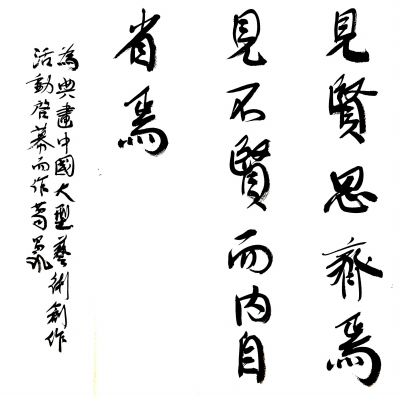 見賢思齊焉
見不賢而內自
省焉
為典畫中國大型藝術創作
活動啓幕而作